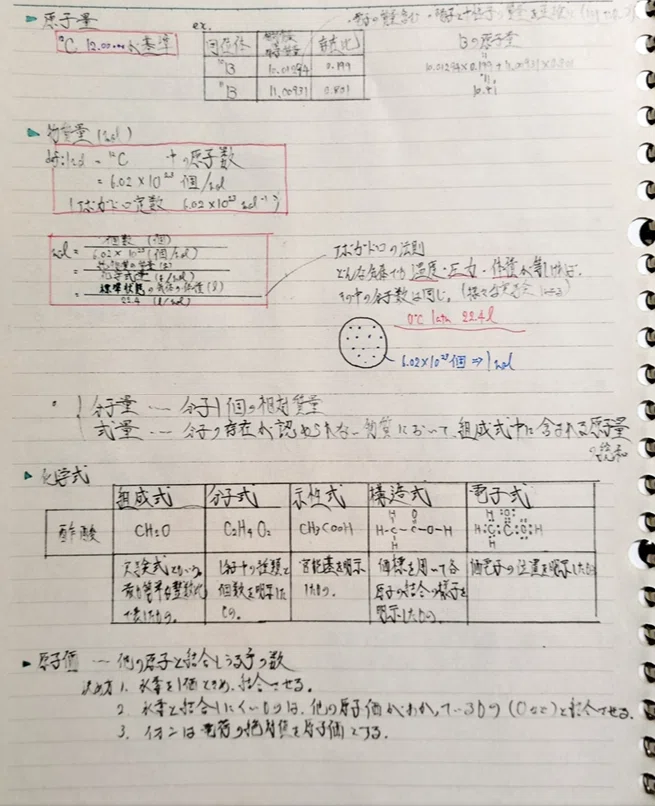 原子量
¹²C 12.00…が基準
ex.
同位体 存在比
¹⁰B 10.01294 0.199
¹¹B 11.00931 0.801
Bの原子量
10.01294×0.199+11.00931×0.801
10.81
物質量(mol)
1mol = ¹²C 中の原子数
= 6.02×10²³ 個/mol
アボガドロ定数 6.02×10²³ mol⁻¹
mol = 個数(個)
6.02×10²³(個/mol)
標準状態の気体の体積(ℓ)
22.4 (ℓ/mol)
アボガドロの法則
どんな気体でも温度・圧力・体積が等しければ、
その中の分子数は同じ。
0℃ 1atm 22.4ℓ
6.02×10²³個 ⇒ 1mol
分子量 … 分子1個の相対質量
式量 … 分子の存在が認められない物質において、組成式中に含まれる原子量
の総和
化学式
組成式 分子式 示性式 構造式 電子式
酢酸 CH₂O C₂H₄O₂ CH₃COOH
H O
H-C-C-O-H
H
H :O:
H:C:C:O:H
H
官能基を明示
したもの。
価標を用いて各
原子の結合の様子を
明示したもの。
価電子の位置を明示したもの
原子価 … 他の原子と結合しうる手の数
求め方 1. 水素を1価ときめ、結合させる。
2. 水素と結合しにくいものは、他の原子価がわかっているもの(Oなど)と結合させる。
3. イオンは電荷の絶対値を原子価とする。